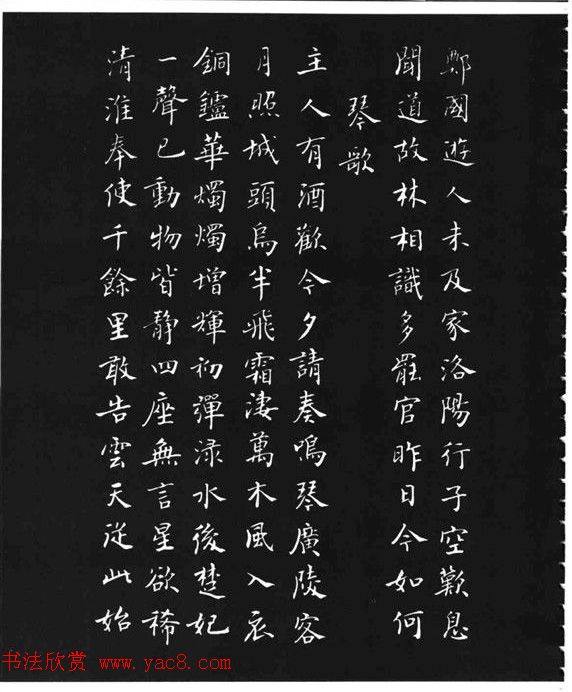 鄭國遊人未及家洛陽行子空歎息
聞道故林相識多罷官昨日今如何
琴歌
主人有酒歡今夕請奏鳴琴廣陵客
月照城頭烏半飛霜淒萬木風入衣
銅鑪華燭燭增輝初彈淥水後楚妃
一聲已動物皆靜四座無言星欲稀
清淮奉使千餘里敢告雲天從此始
书法欣赏 www.yac8.com